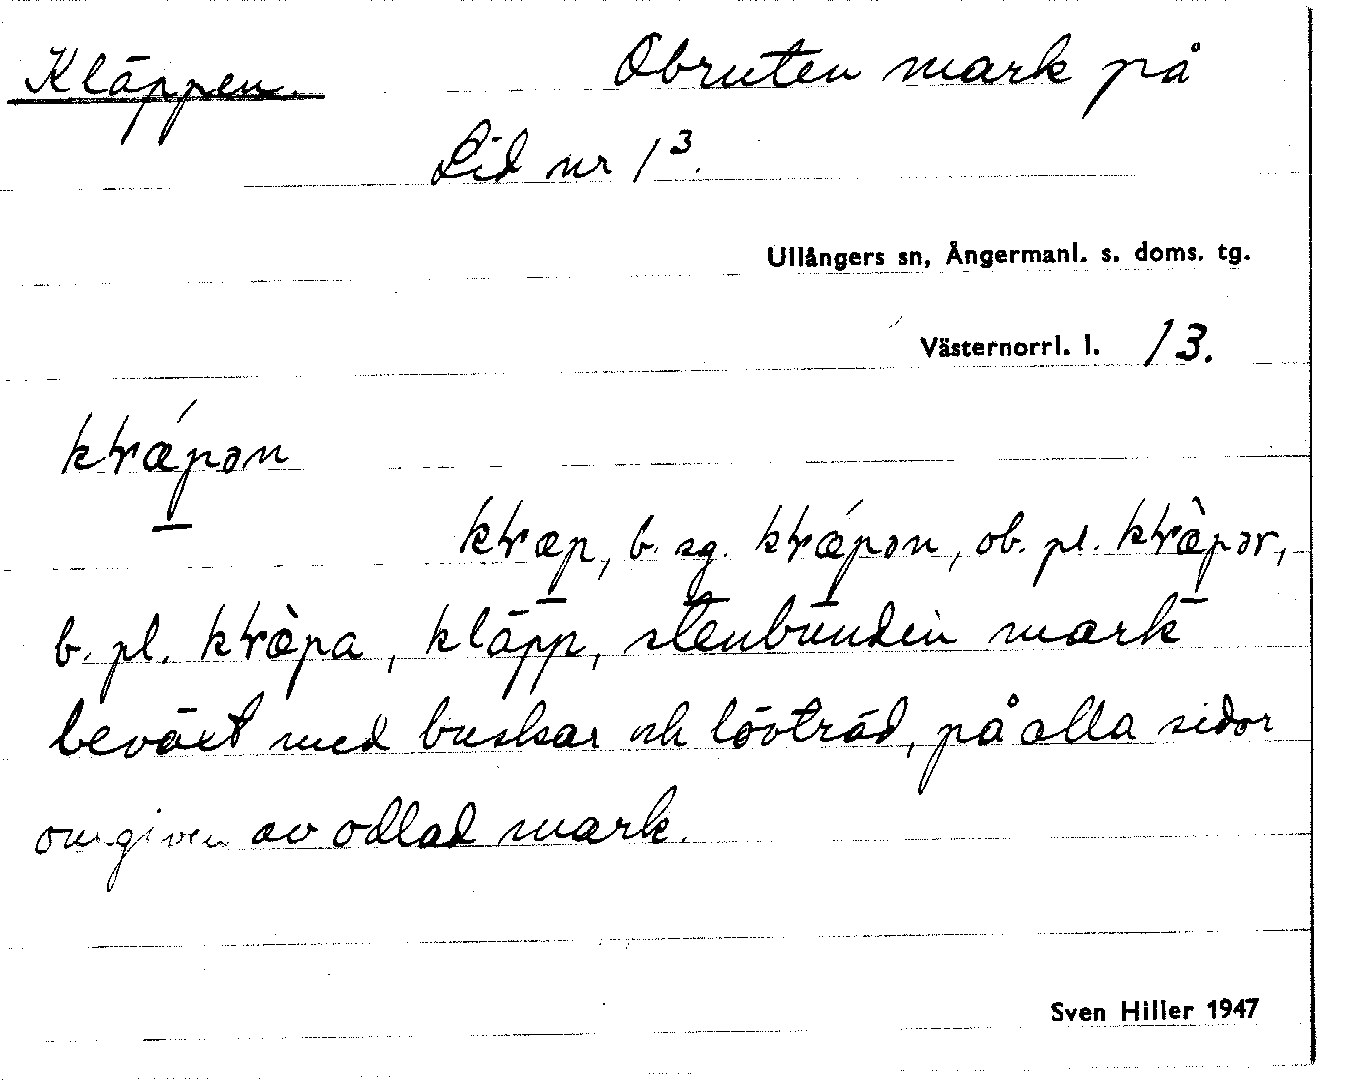 Kläppen. Obruten mark på
Lid nr 1³.
Ullångers sn, Ångermanl. s. doms. tg.
Västernorrl. l. 13.
kɽǽpən
kɽæp, b. sg. kɽǽpən, ob. pl. kɽæ̀pər,
b. pl. kɽæ̀pa, kläpp, stenbunden mark
beväxt med buskar och lövträd, på alla sidor
omgiven av odlad mark.
Sven Hiller 1947